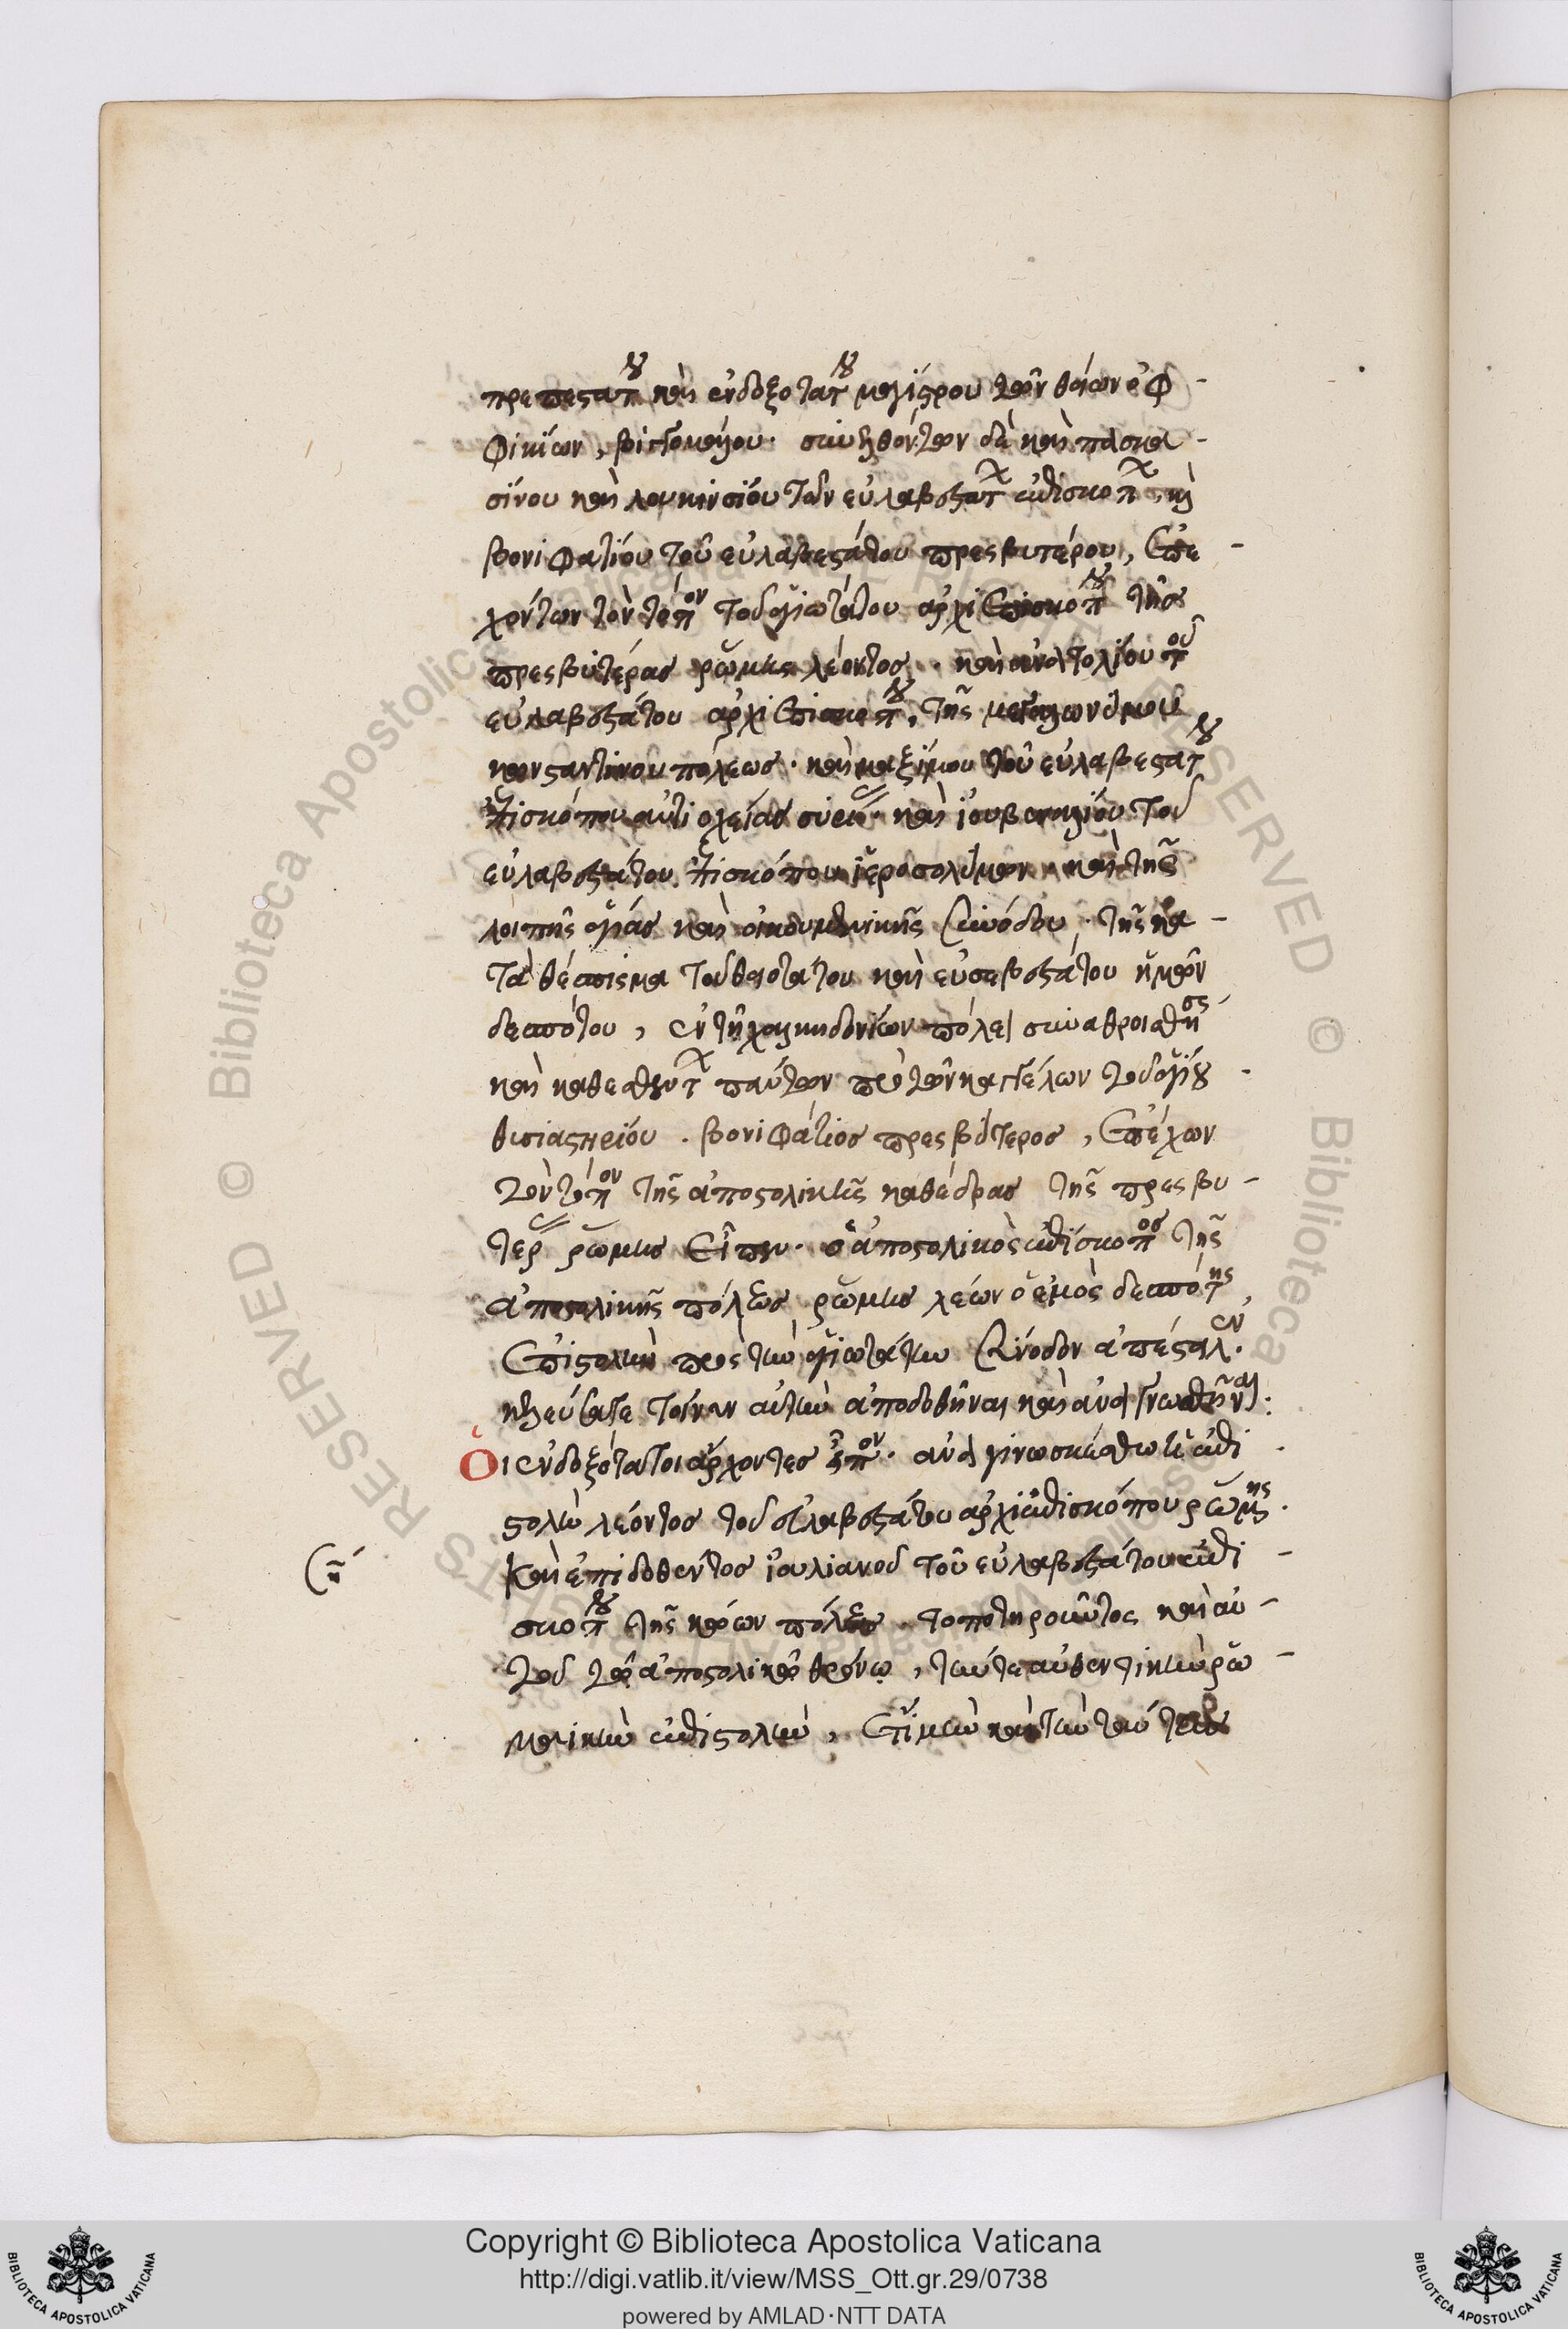 πρεπεστατου και ενδοξοτατου μαγίστρου των θείων ὀφ-
φικίων, βιγκομάλου. συνελθόντων δὲ καὶ πασκα-
σίνου καὶ λουκινσίου τῶν εὐλαβεστατων επισκοπων, καὶ
βονιφατίου τοῦ εὐλαβεστάτου πρεσβυτέρου, Επε-
χόντων τὸν τόπον τοῦ ἁγιωτάτου αρχιεπισκοπου τῆς
πρεσβυτέρας ρώμης λέοντος. καὶ ανατολίου τοῦ
εὐλαβεστάτου αρχιεπισκοπου, τῆς μεγαλωνύμου
κωνσταντινουπόλεως. καὶ μαξίμου τοῦ εὐλαβεστατου
επισκόπου αντιοχείας συρίας. καὶ ἰουβεναλίου τοῦ
εὐλαβεστάτου επισκόπου ἱεροσολύμων. καὶ τῆς
λοιπῆς ἁγίας καὶ οἰκουμενικῆς συνόδου. τῆς κα-
τὰ θέσπισμα τοῦ θειοτάτου καὶ εὐσεβεστάτου ἡμῶν
δεσπότου, εν τῇ χαλκηδονέων πόλει συναθροισθείσης
καὶ καθεσθεντων παντων προ των καγκέλων τοῦ ἁγίου
θυσιαστηρίου. βονιφάτιος πρεσβύτερος, Επέχων
τὸν τόπον τῆς ἀποστολικῆς καθέδρας τῆς πρεσβυ-
τερας ρώμης Εἶπεν. ὁ ἀποστολικὸς επίσκοπος τῆς
ἀποστολικῆς πόλεως ρώμης λέων ὁ ἐμὸς δεσπότης,
Επιστολὴν προς τὴν ἁγιωτάτην Σύνοδον ἀπέστειλεν.
κελεύσατε τοίνυν αὐτὴν ἀποδοθῆναι καὶ ἀναγνωσθῆναι:
Ὁι ενδοξότατοι άρχοντες εἶπον. ἀναγινωσκέσθω ἡ επι
στολὴ λέοντος τοῦ εὐλαβεστάτου αρχιεπισκόπου ρώμης.
Και ἐπιδοθέντος ἰουλιανοῦ τοῦ εὐλαβεστάτου επι-
σκοπου τῆς κώων πόλεως τοποτηροῦντος καὶ αὐ-
τοῦ τῶ ἀποστολικῶ θρόνῳ, τήν τε αὐθεντικὴν ρω-
μαικὴν επιστολὴν, Ετι μὴν καὶ τὴν